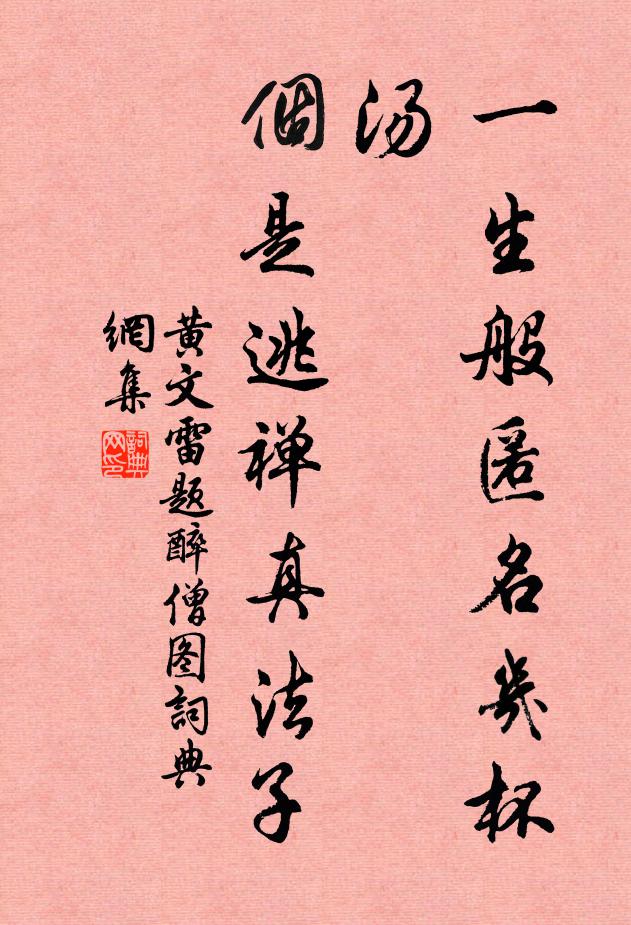 一生般匿名幾杯
汤
個是逃禅真法子
黄文雷题醉僧图詞典
網集
詞典网印